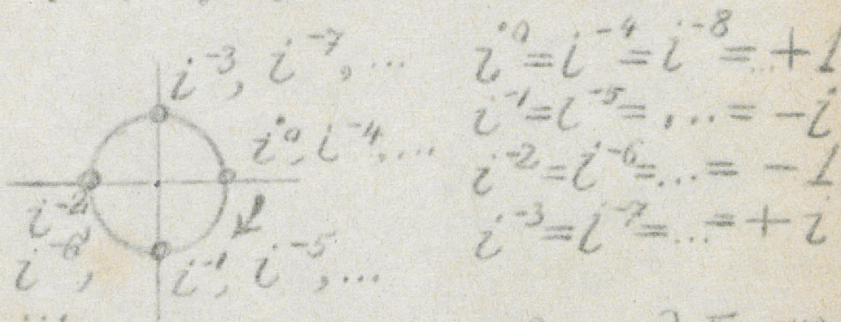 i⁻³, i⁻⁷, ...
i⁰, i⁻⁴, ...
i⁻²,
i⁻⁶,
i⁻¹, i⁻⁵, ...
i⁰ = i⁻⁴ = i⁻⁸ = ... +1
i⁻¹ = i⁻⁵ = ... = -i
i⁻² = i⁻⁶ = ... = -1
i⁻³ = i⁻⁷ = ... = +i